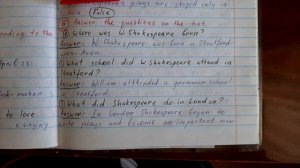 plays are staged only in
(False)
Answer the questions on the text.
Where was W. Shakespeare born?
Answer: W. Shakespeare was born in Stratford-
upon-Avon.
What school did W Shakespeare attend in
Stratford?
Answer: William attended a grammar school
Stratford.
What did Shakespeare do in London?
Answer: In London Shakespeare began to
write plays and became an important man
ording to the
April 23
maker
to love
singing